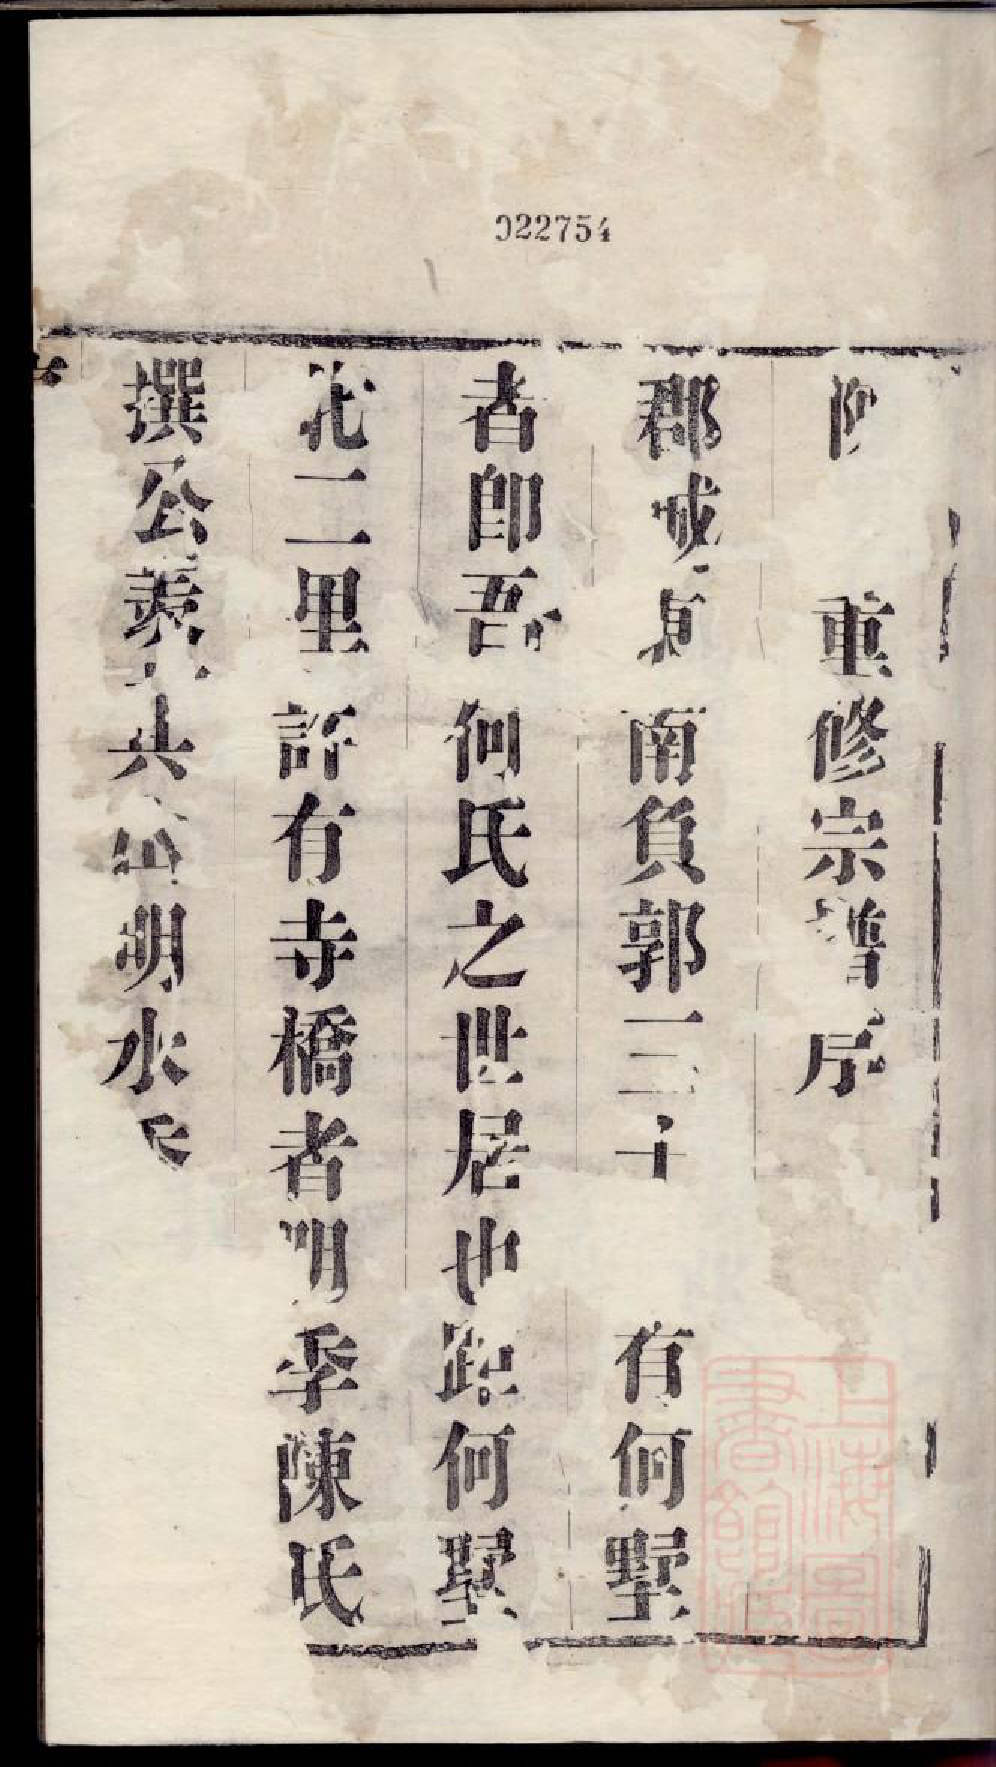 022754
重修宗譜序
郡城東南負郭三十有何墅
者卽吾何氏之世居也距何墅
北二里許有寺橋者明季陳氏
撰公義共 明水氏
上海圖書館藏